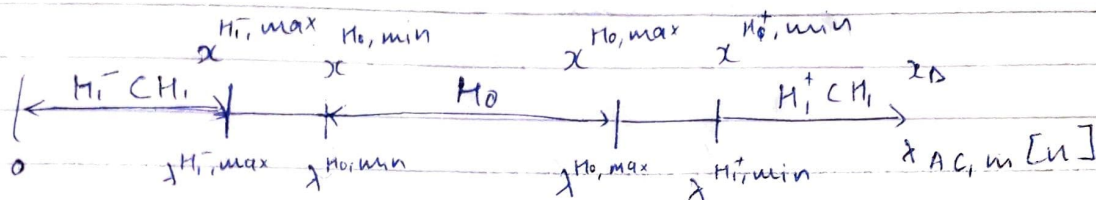 x^{H₁⁻,max} x^{H₀,min} x^{H₀,max} x^{H₁⁺,min} x_Δ
H₁⁻ ⊂ H₁ H₀ H₁⁺ ⊂ H₁
0 λ^{H₁⁻,max} λ^{H₀,min} λ^{H₀,max} λ^{H₁⁺,min} λ_{AC,m}[n]